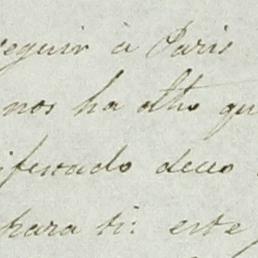 seguir á Paris
nos ha dho qu
ifestado deseo
para ti: este